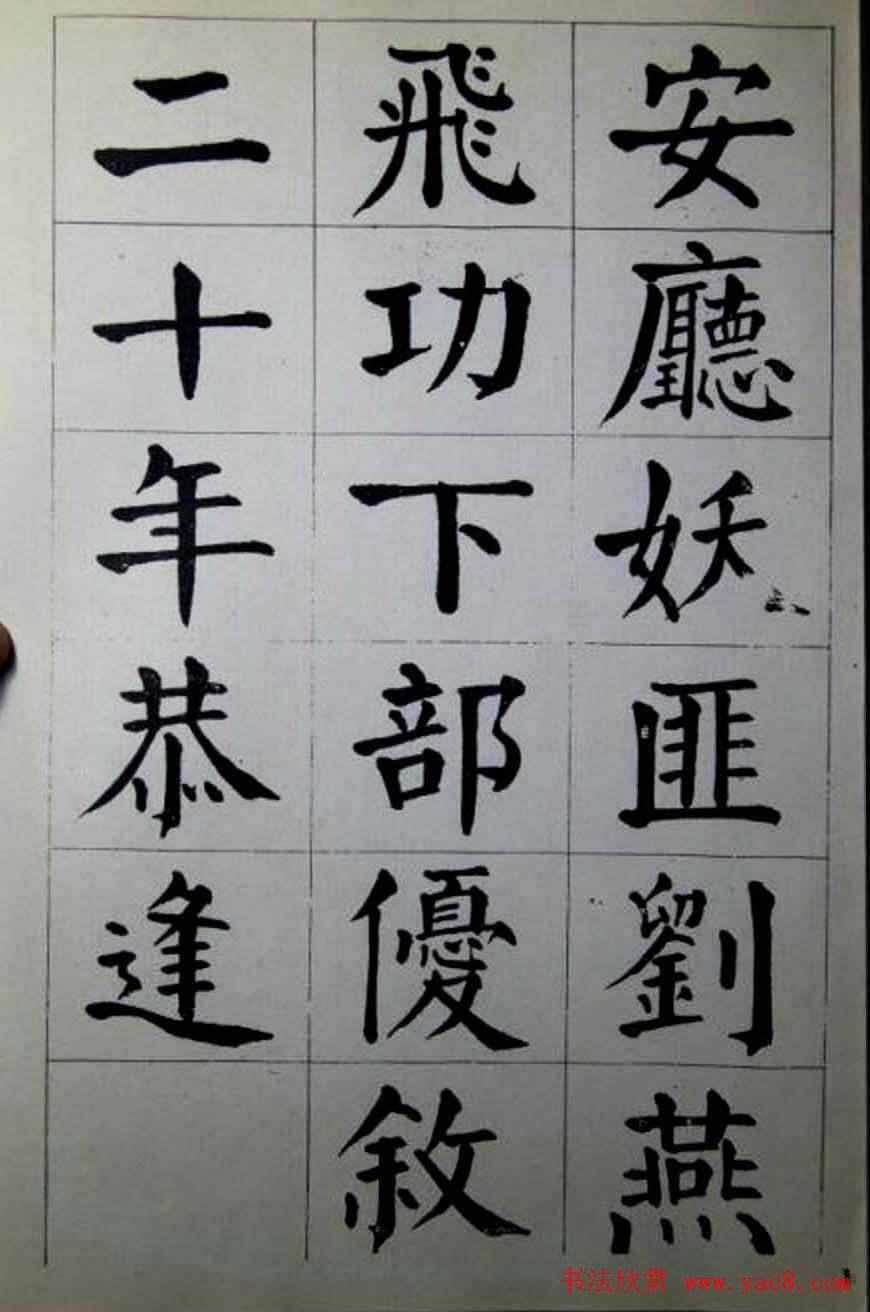 安廳妖匪劉燕
飛功下部優敘
二十年恭逢
书法欣赏 www.yac8.com